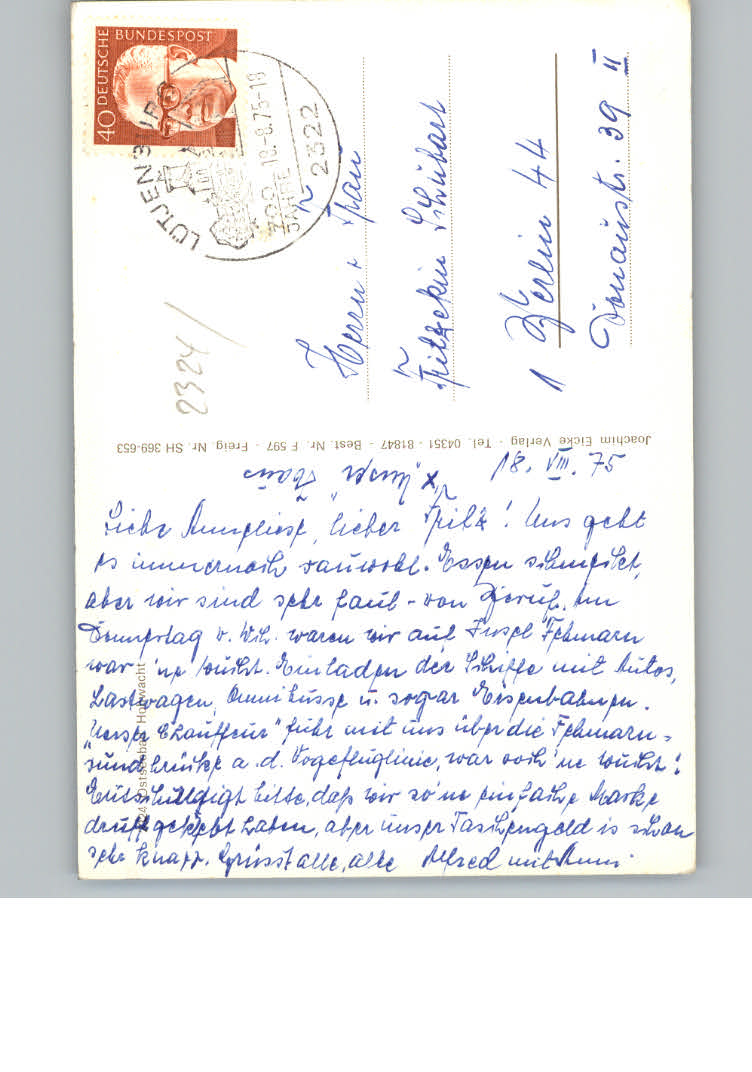 DEUTSCHE BUNDESPOST
40
LÜTJENBURG
700 JAHRE
18.-8.75-18
2322
2324/
Herrn u Frau
Fritzekin Schubart
1 Berlin 44
Donaustr. 39 II
Joachim Eicke Verlag - Tel. 04351 - 81847 - Best. Nr. F 597 - Freig. Nr. SH 369-653
18. VIII. 75
Liebe Anneliese, lieber Fritz! Uns geht
es immernoch sauwohl. Essen schmeckt,
aber wir sind sehr faul - von Beruf. Am
Donnerstag v. Wch. waren wir auf Insel Fehmarn
war 'ne Wucht. Einladen der Schiffe mit Autos,
Lastwagen, Omnibusse u. sogar Eisenbahnen.
"Unser Chauffeur" fuhr mit uns über die Fehmarn=
sundbrücke a. d. Vogelfluglinie, war ooch 'ne Wucht!
Entschuldigt bitte, daß wir so 'ne einfache Marke
druff geklebt haben, aber unser Taschengeld is schon
sehr knapp. Grüsst alle, alle Alfred mit Anni.
Ostseebad Hohwacht